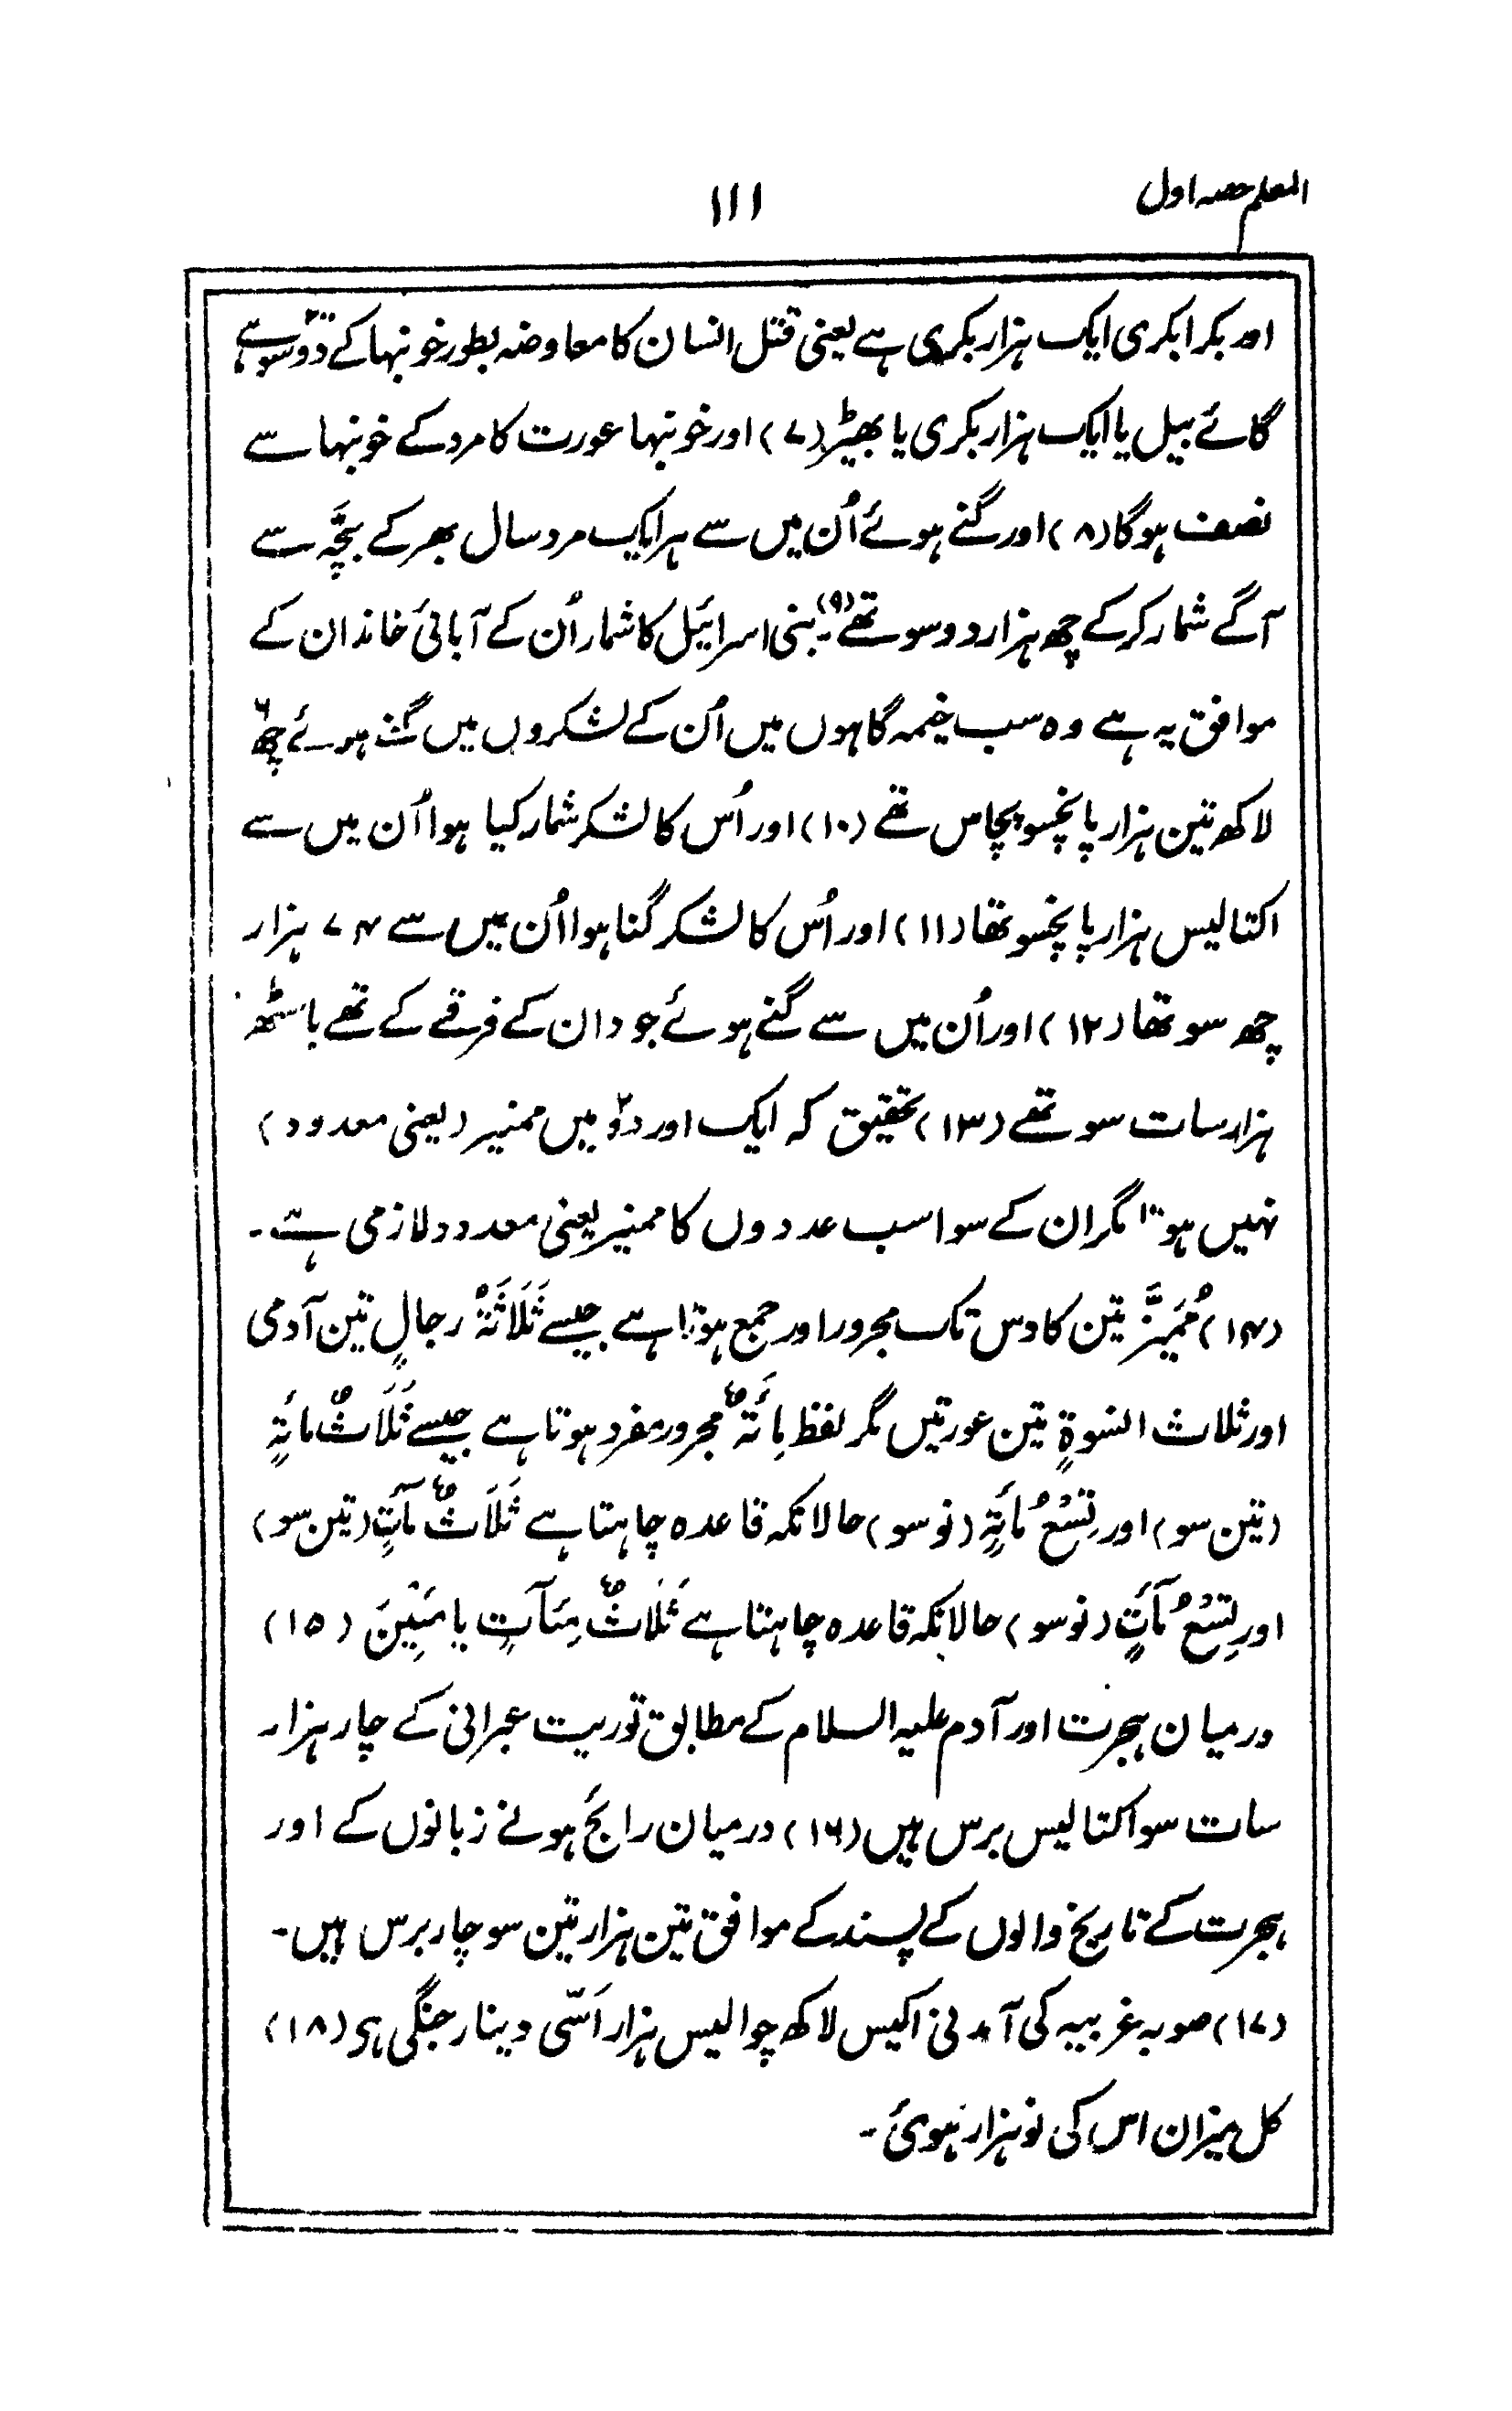 المعلم حصہ اول
۱۱۱
اور بکرا بکری ایک ہزار بکری ہے یعنی قتل انسان کا معاوضہ بطور خونبہا کے دو سو ہے
گائے بیل یا ایک ہزار بکری یا بھیڑ (۷) اور خونبہا عورت کا مرد کے خونبہا سے
نصف ہوگا (۸) اور گنے ہوئے اُن میں سے ہر ایک مرد سال بھر کے بچّہ سے
آگے شمار کرکے چھ ہزار دو سو تھے (۹)۔ بنی اسرائیل کا شمار اُن کے آبائی خاندان کے
موافق یہ ہے وہ سب خیمہ گاہوں میں اُن کے لشکروں میں گنے ہوئے چھ
لاکھ تین ہزار پانچسو پچاس تھے (۱۰) اور اُس کا لشکر شمار کیا ہوا اُن میں سے
اکتالیس ہزار پانچسو تھا (۱۱) اور اُس کا لشکر گنا ہوا اُن میں سے ۷۴ ہزار
چھ سو تھا (۱۲) اور اُن میں سے گنے ہوئے جو دان کے فرقے کے تھے باسٹھ
ہزار سات سو تھے (۱۳) تحقیق کہ ایک اور دو میں ممیز (یعنی معدود)
نہیں ہوتا مگر ان کے سوا سب عددوں کا ممیز یعنی معدود لازمی ہے۔
(۱۴) مُمَیَّز تین کا دس تک مجرور اور جمع ہوتا ہے جیسے ثَلَاثَۃُ رجالٍ تین آدمی
اور ثلاث النسوۃٍ تین عورتیں مگر لفظ مِائَۃٌ مجرور مفرد ہوتا ہے جیسے ثَلَاثٌ مائَۃٍ
(تین سو) اور تِسْعُ مائَۃٍ (نو سو) حالانکہ قاعدہ چاہتا ہے ثَلَاثٌ مآتٍ (تین سو)
اور تِسْعُ مآتٍ (نو سو) حالانکہ قاعدہ چاہتا ہے ثَلٰاثٌ مِئَآتٍ یا مِئِیْنَ (۱۵)
درمیان ہجرت اور آدم علیہ السلام کے مطابق توریت عبرانی کے چار ہزار
سات سو اکتالیس برس ہیں (۱۶) درمیان رائج ہونے زبانوں کے اور
ہجرت کے تاریخ والوں کے پسند کے موافق تین ہزار تین سو چار برس ہیں۔
(۱۷) صوبہ غربیہ کی آمدنی اکیس لاکھ چوالیس ہزار اَسّی دینار جنگی ہی (۱۸)
کل میزان اس کی نو ہزار ہوئی۔